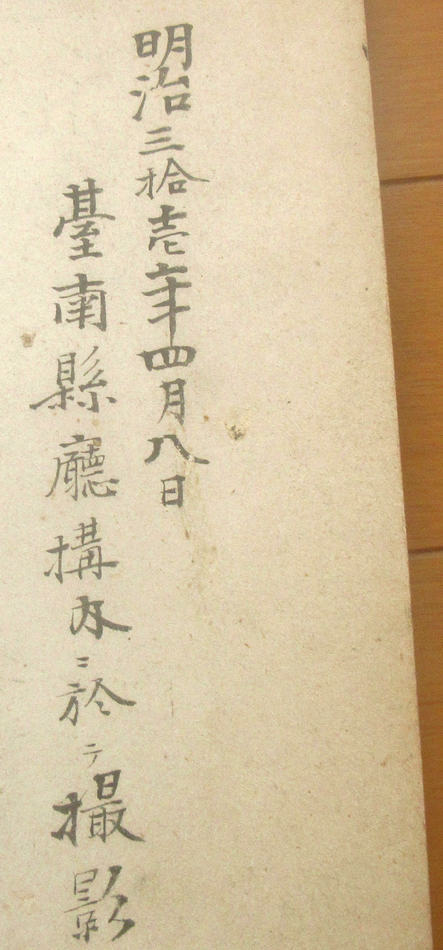 明治三拾壱年四月八日
臺南縣廳構内ニ於テ撮影